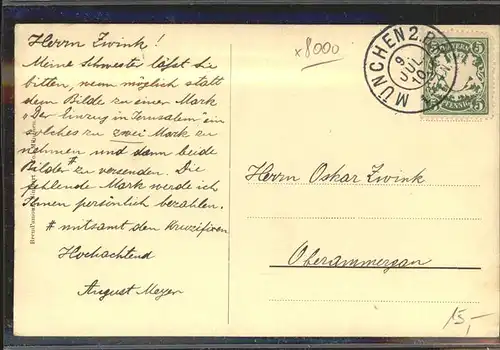 Herrn Zwink!
Meine Schwester läßt Sie
bitten, wenn möglich statt
dem Bilde zu einer Mark
"Der Einzug in Jerusalem" ein
solches zu zwei Mark zu
nehmen und dann beide
Bilder # zu versenden. Die
fehlende Mark werde ich
Ihnen persönlich bezahlen.
# mitsamt den Kruzifixen
Hochachtend
August Meyer
x8000
MÜNCHEN 2.
9
JUL
10
BAYERN
5 PFENNIG 5
Herrn Oskar Zwink
Oberammergau
15,-